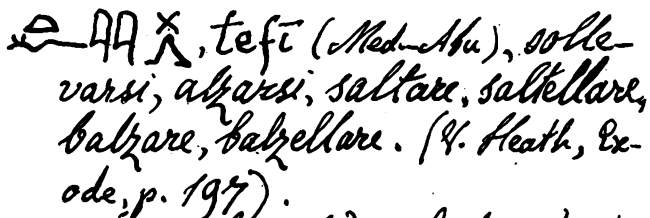 𓏏𓆑𓇋𓇋𓏴𓂻, tefī (Med-Abu), solle-
varsi, alzarsi, saltare, saltellare,
balzare, balzellare. (V. Heath, Ex-
ode, p. 197).